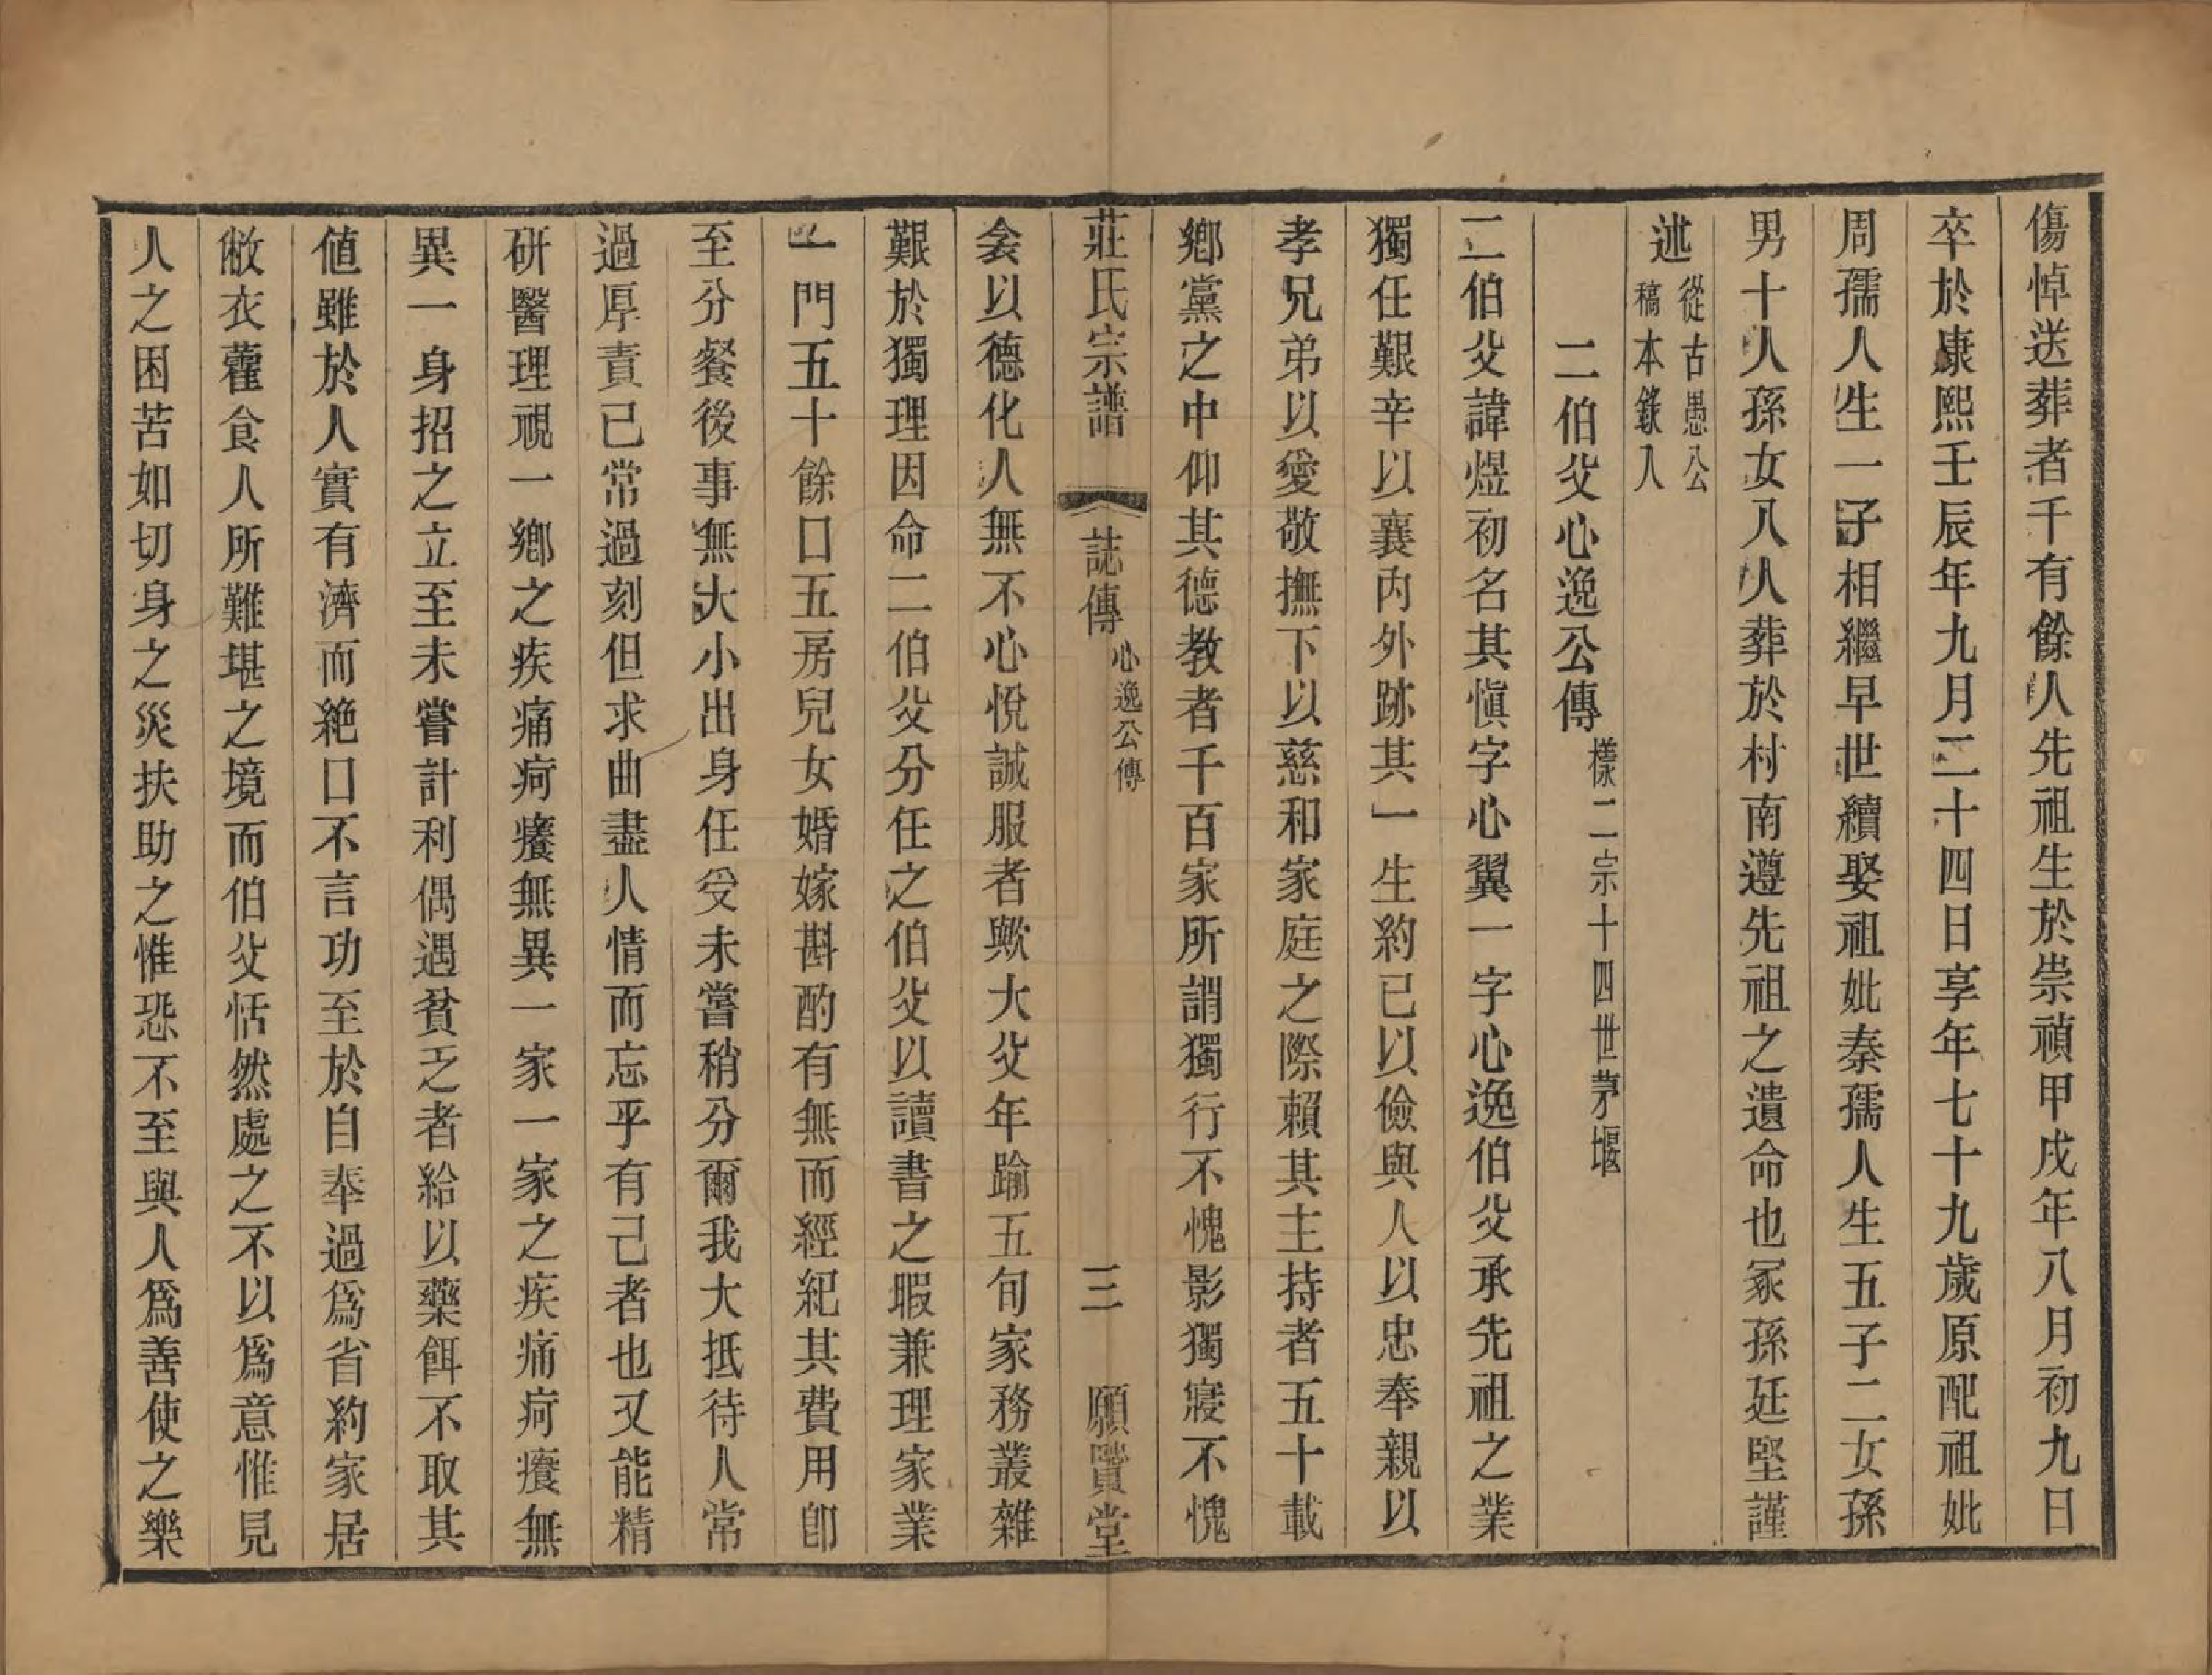 傷悼送葬者千有餘人先祖生於崇禎甲戌年八月初九日
卒於康熙壬辰年九月二十四日享年七十九歲原配祖妣
周孺人生一子相繼早世續娶祖妣秦孺人生五子二女孫
男十人孫女八人葬於村南遵先祖之遺命也冢孫廷堅謹
述從古愚公
稿本錄入
二伯父心逸公傳樣二宗十四世茅堰
二伯父諱煜初名其愼字心翼一字心逸伯父承先祖之業
獨任艱辛以襄內外跡其一生約己以儉與人以忠奉親以
孝兄弟以愛敬撫下以慈和家庭之際賴其主持者五十載
鄕黨之中仰其德教者千百家所謂獨行不愧影獨寢不愧
莊氏宗譜 誌傳 心逸公傳 三 願賢堂
衾以德化人無不心悅誠服者歟大父年踰五旬家務叢雜
艱於獨理因命二伯父分任之伯父以讀書之暇兼理家業
一門五十餘口五房兒女婚嫁斟酌有無而經紀其費用卽
至分餐後事無大小出身任受未嘗稍分爾我大抵待人常
過厚責已常過刻但求曲盡人情而忘乎有己者也又能精
硏醫理視一鄕之疾痛疴癢無異一家一家之疾痛疴癢無
異一身招之立至未嘗計利偶遇貧乏者給以藥餌不取其
値雖於人實有濟而絕口不言功至於自奉過爲省約家居
敝衣藿食人所難堪之境而伯父恬然處之不以爲意惟見
人之困苦如切身之災扶助之惟恐不至與人爲善使之樂